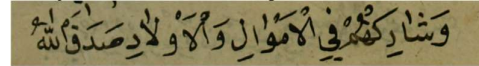 وَشَارِكْهُمْ فِي الْأَمْوَالِ وَالْأَوْلَادِ صَدَقَ اللّٰهُ